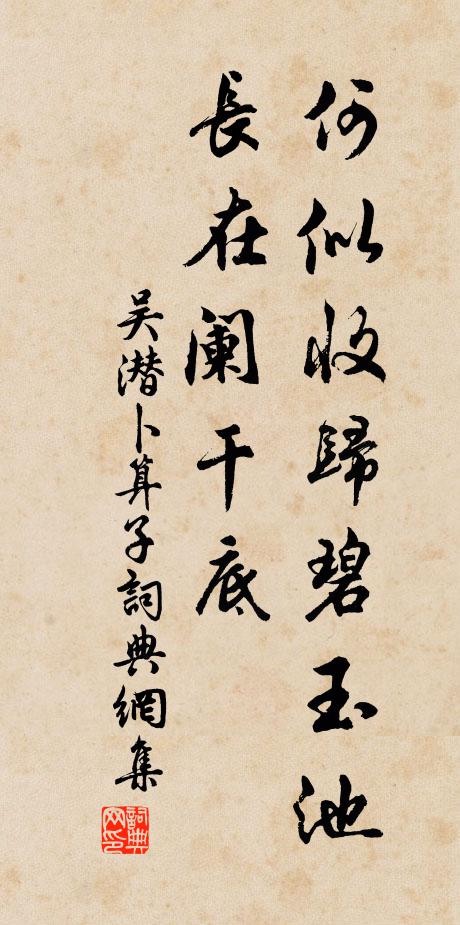 何似收歸碧玉池
長在阑干底
吴潜卜算子詞典網集
詞典网印